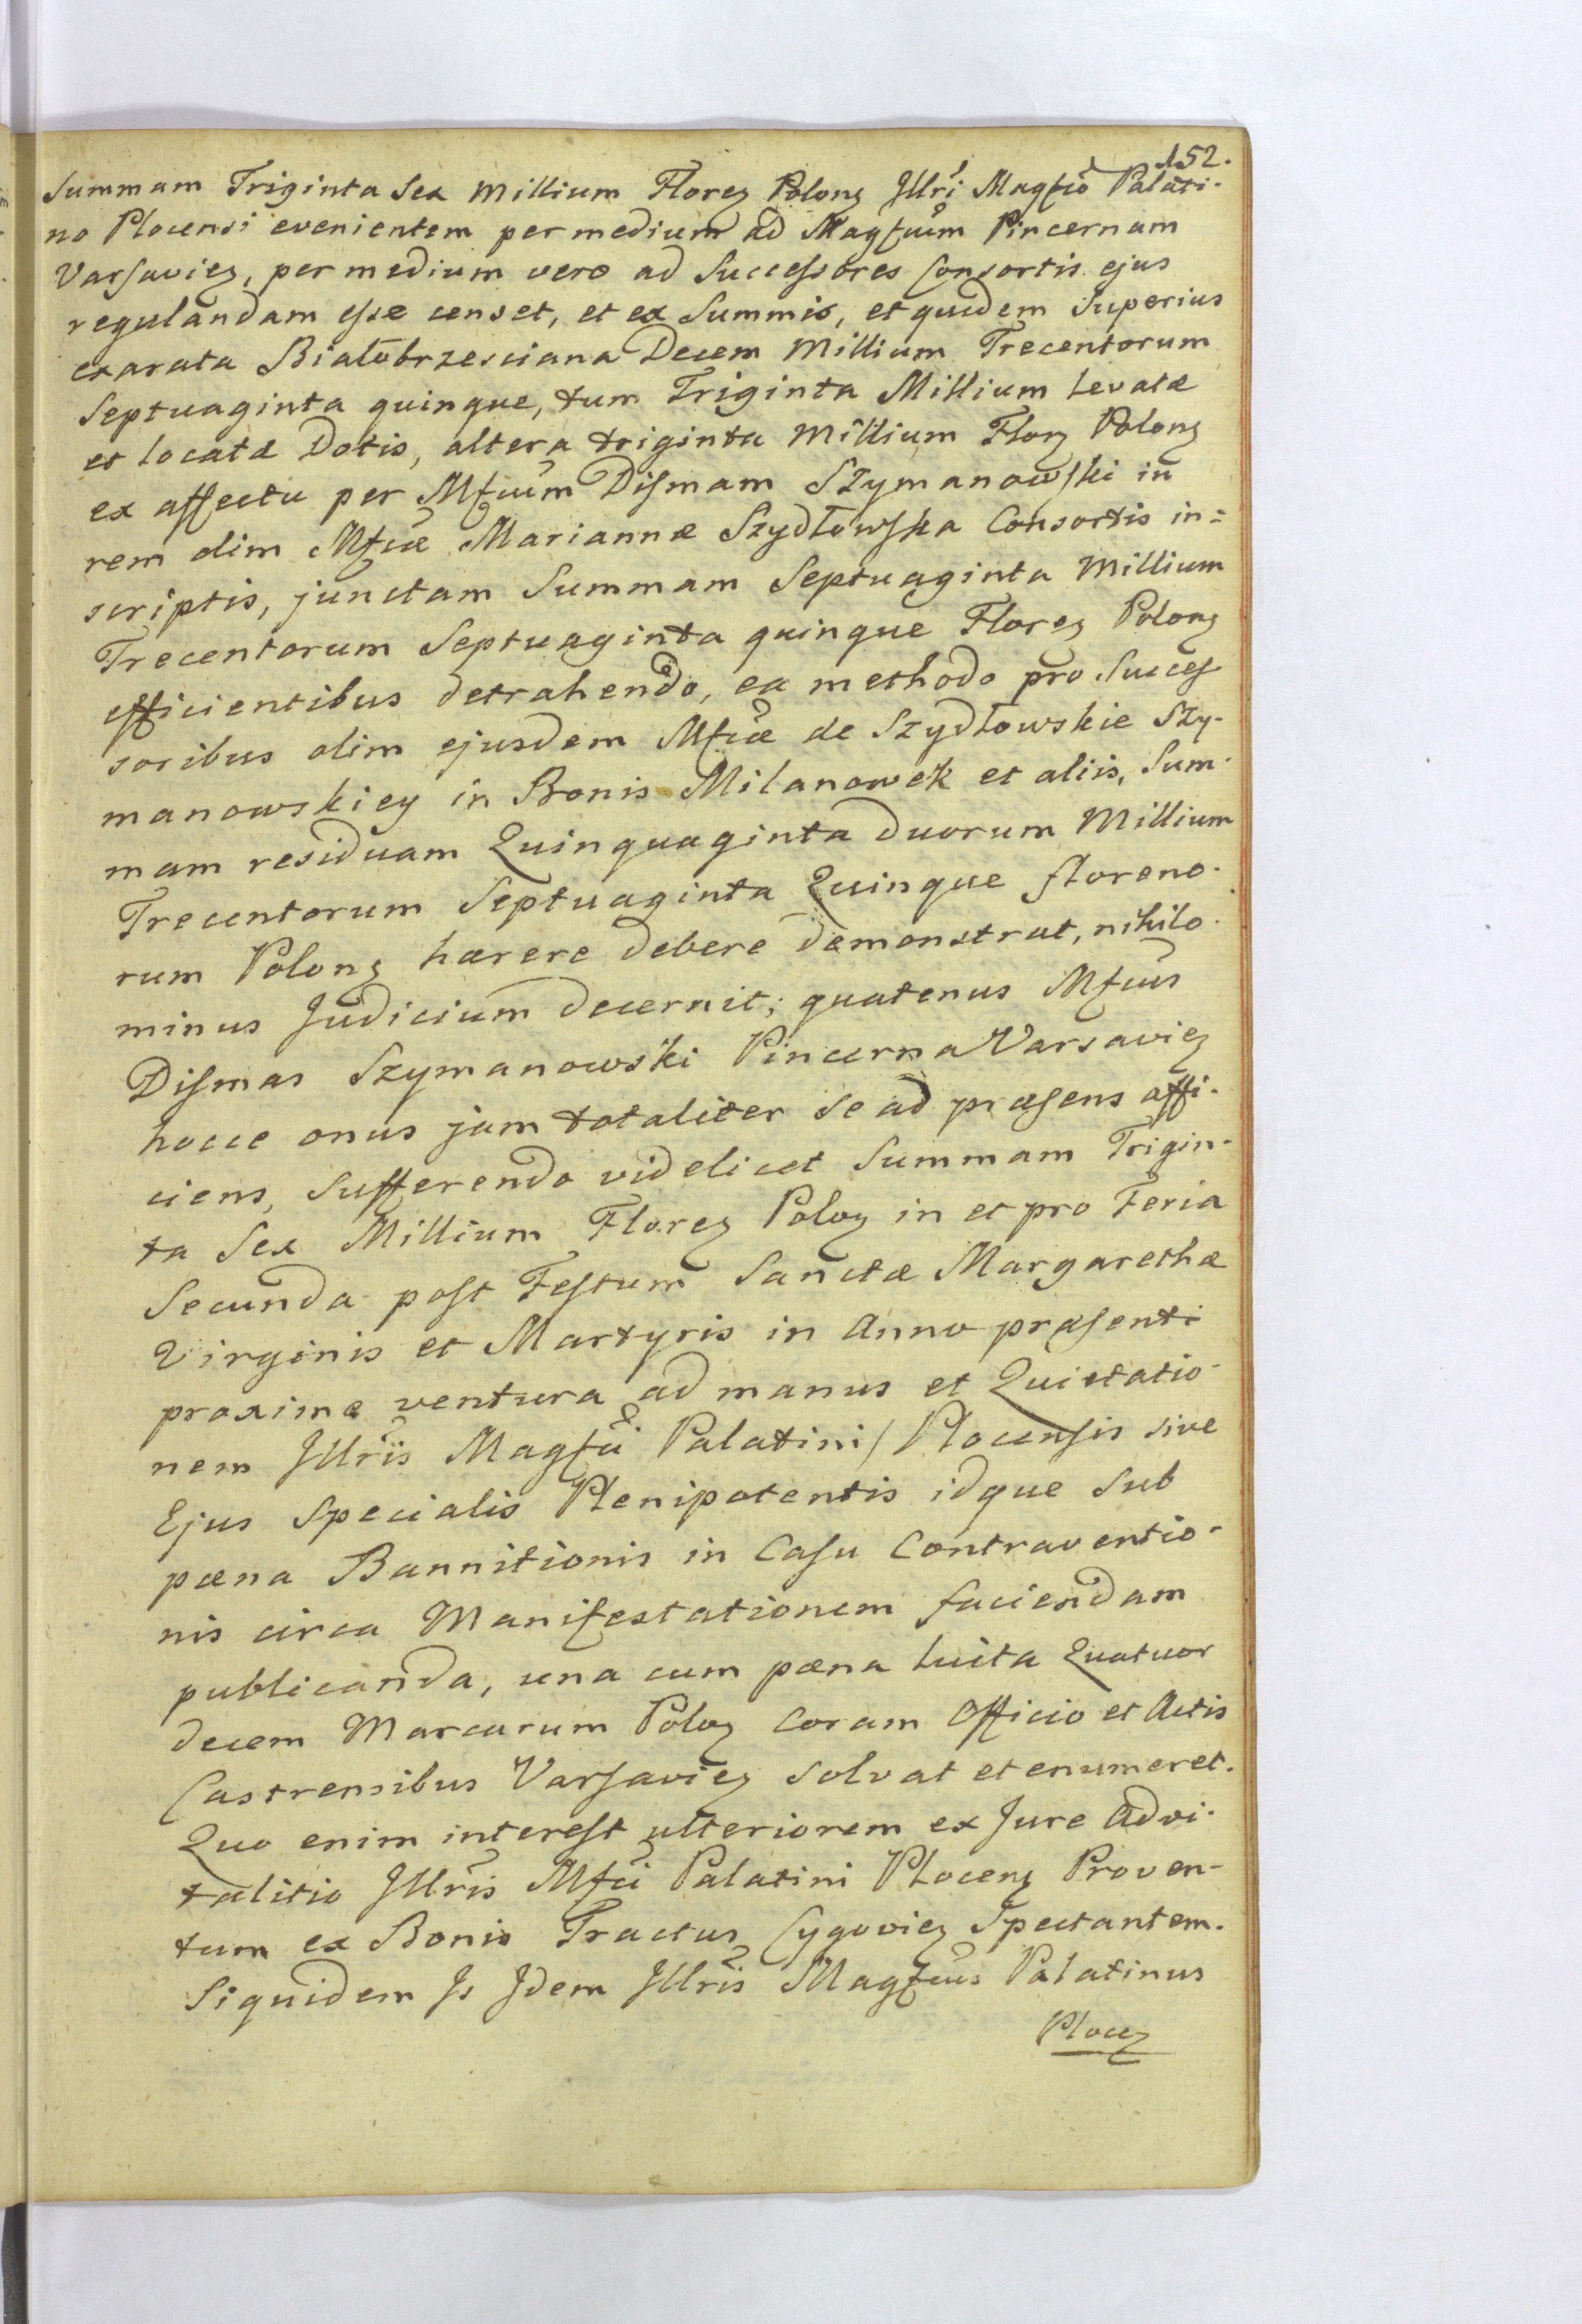 152.
Summam Triginta Sex Millium Florez Polonz Jllri Magfico Palati-
no Plocensi evenientem per medium ad Magficum Pincernam
Varsaviez, per medium vero ad Successores Consortis ejus
regulandam esse censet, et ex Summis, et quidem Superius
exarata Białobrzesciana Decem Millium Trecentorum
Septuaginta quinque, tum Triginta Millium Levatæ
et locatæ Dotis, altera triginta Millium Florz Polonz
ex affectu per Mfcum Dismam Szymanowski in
rem olim Mfcæ Mariannæ Szydłowska Consortis in=
scriptis, junctam Summam Septuaginta Millium
Trecentorum Septuaginta quinque Florez Polonz
efficientibus detrahendo, ea methodo pro Succes
soribus olim ejusdem Mfcæ de Szydłowskie Szy-
manowskiey in Bonis Milanowek et aliis, Sum-
mam residuam Quinquaginta duorum Millium
Trecentorum Septuaginta Quinque floreno-
rum Polonz hærere debere demonstrat, nihilo-
minus Judicium decernit; quatenus Mfcus
Dismas Szymanowski Pincerna Varsaviez
hocce onus jam totaliter se ad præsens affi-
ciens, Sufferendo videlicet Summam Trigin-
ta Sex Millium Florez Poloz in et pro Feria
Secunda post Festum Sanctæ Margarethæ
Virginis et Martyris in Anno præsenti
proxime ventura ad manus et Quietatio-
nem Jllris Magfci Palatini Plocensis sive
Ejus Specialis Plenipotentis idque Sub
pæna Bannitionis in Casu Contraventio-
nis circa Manifestationem faciendam
publicanda, una cum pæna luita Quatuor
decem Marcarum Poloz Coram Officio et Actis
Castrensibus Varsaviez Solvat et enumeret.
Quo enim interest ulteriorem ex Jure Advi-
talitio Jllris Mfci Palatini Plocenz Proven-
tum ex Bonis Tractus Cygoviez Spectantem.
Siquidem Js Jdem Jllris Magfcus Palatinus
Plocz